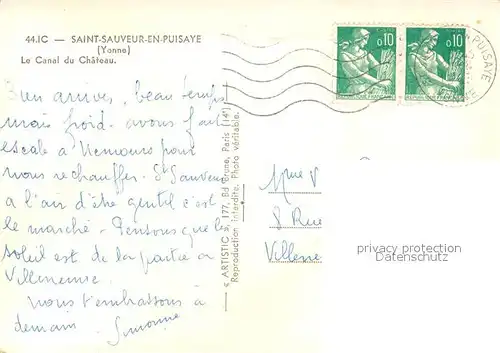 44.IC — SAINT-SAUVEUR-EN-PUISAYE
(Yonne)
Le Canal du Château.
Bien arrivés, beau temps
mais froid - avons fait
escale à Nemours pour
nous réchauffer. St Sauveur
a l'air d'être gentil c'est
le marché - Pensons que le
soleil est de la partie à
Villeneuve.
Nous t'embrassons à
demain. Simone
« ARTISTIC », 177, Bd Brune, Paris (14e)
Reproduction Interdite. Photo véritable.
0,10
0,10
EN PUISAYE
Mme V
8 Rue
Villene
privacy protection
Datenschutz